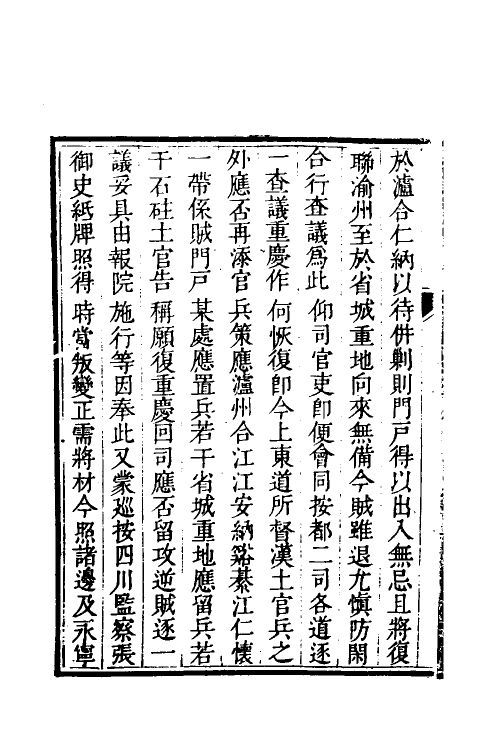 於瀘合仁納以待併剿則門戸得以出入無忌且將復
聯渝州至於省城重地向來無備今賊雖退尤慎防閑
合行查議爲此　仰司官吏即便會同按都二司各道逐
一查議重慶作　何恢復卽今上東道所督漢土官兵之
外應否再添官　兵策應瀘州合江江安納谿綦江仁懷
一帶係賊門戸　某處應置兵若干省城重地應留兵若
干石砫土官告　稱願復重慶回司應否留攻逆賊逐一
議妥具由報院　施行等因奉此又蒙巡按四川監察張
御史紙牌照得　時當叛變正需將材今照諸邊及永寧